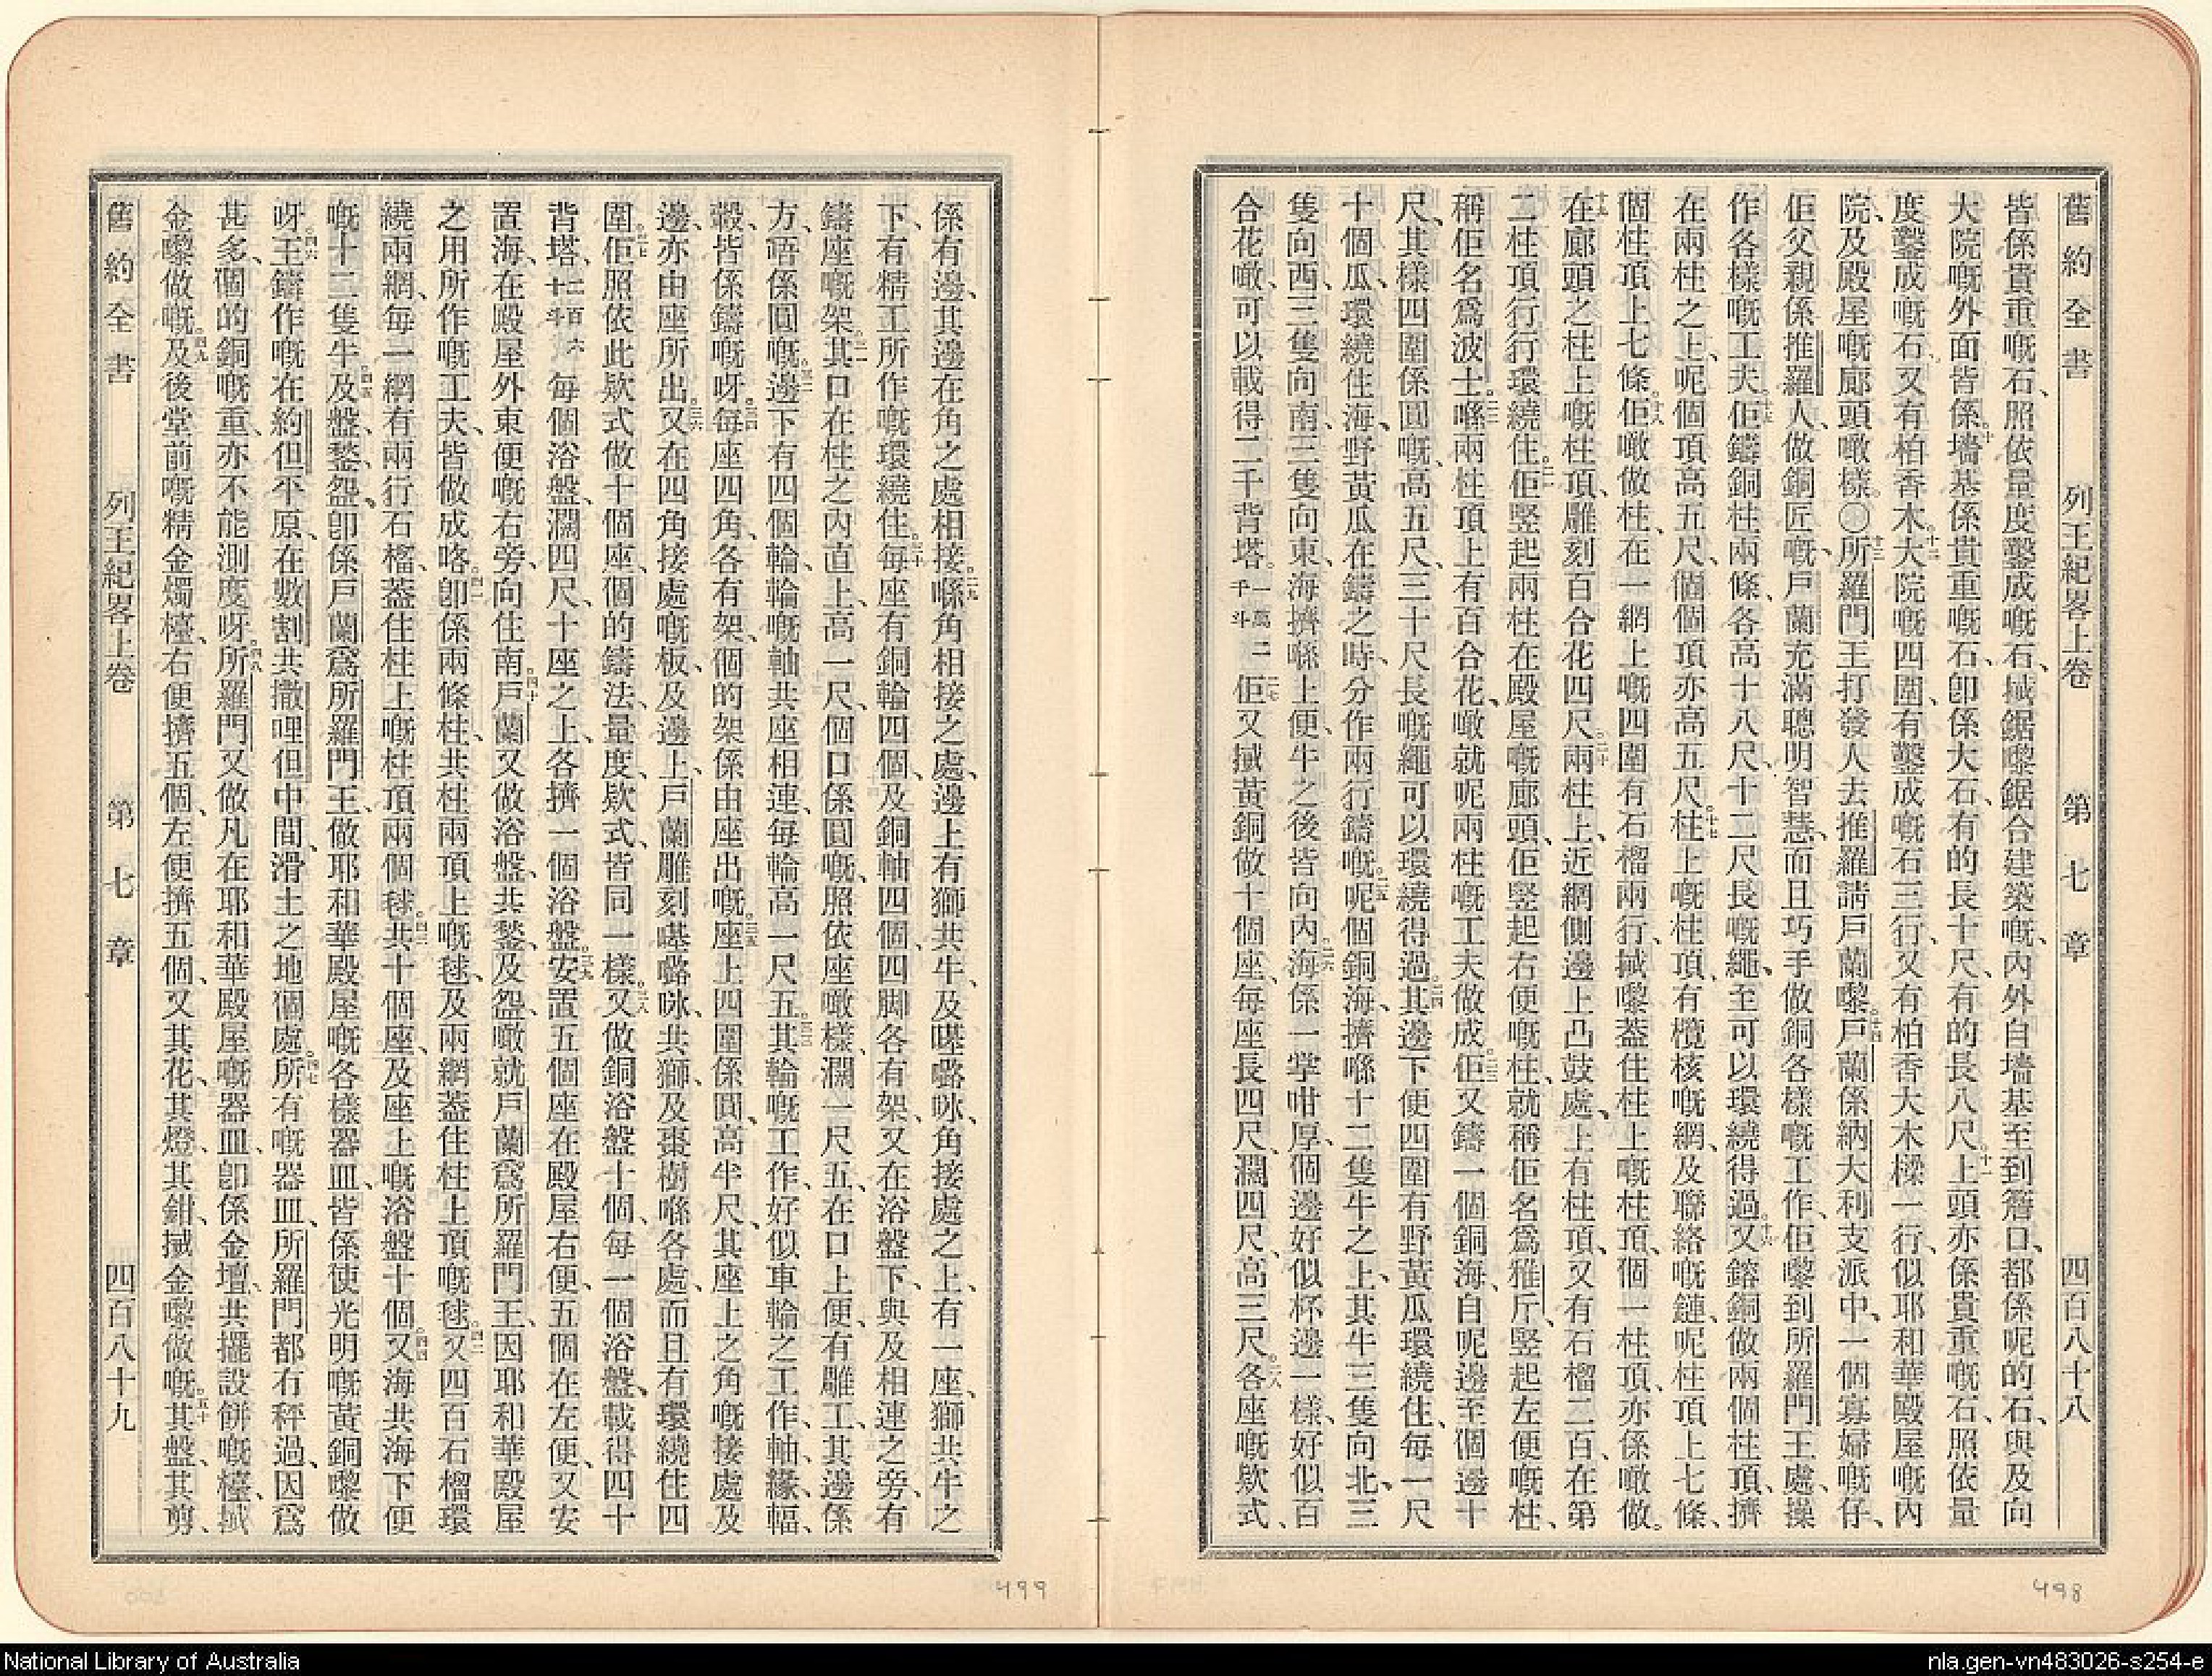 舊約全書 列王紀畧上卷 第七章 四百八十八
皆係貴重嘅石、照依量度鑿成嘅石、拭鋸嚟鋸合建築嘅、內外自墻基至到簷口、都係呢的石、與及向
大院嘅外面皆係。十墻基係貴重嘅石、卽係大石、有的長十尺、有的長八尺。十一上頭亦係貴重嘅石、照依量
度鑿成嘅石、又有柏香木。十二大院嘅四圍、有鑿成嘅石三行、又有柏香大木樑一行、似耶和華殿屋嘅內
院、及殿屋嘅廊頭噉樣。〇十三所羅門王打發人去推羅請戶蘭嚟。十四戶蘭係納大利支派中、一個寡婦嘅仔、
佢父親係推羅人、做銅匠嘅、戶蘭充滿聰明智慧、而且巧手做銅各樣嘅工作、佢嚟到所羅門王處、操
作各樣嘅工夫。十五佢鑄銅柱兩條、各高十八尺、十二尺長嘅繩、至可以環繞得過。十六又鎔銅做兩個柱頂、擠
在兩柱之上、呢個頂高五尺、個個頂亦高五尺。十七柱上嘅柱頂、有欖核嘅網、及聯絡嘅鏈、呢柱頂上七條、
個柱頂上七條。十八佢噉做柱、在一網上嘅四圍有石榴兩行、拭嚟葢住柱上嘅柱頂、個一柱頂、亦係噉做。
十九在廊頭之柱上嘅柱頂、雕刻百合花四尺。二十兩柱上、近網側邊上凸鼓處、上有柱頂、又有石榴二百、在第
二柱頂行行環繞住。二一佢竪起兩柱在殿屋嘅廊頭、佢竪起右便嘅柱、就稱佢名爲雅斤、竪起左便嘅柱、
稱佢名爲波士。二二喺兩柱頂上有百合花、噉就呢兩柱嘅工夫做成。二三佢又鑄一個銅海、自呢邊至個邊十
尺、其樣四圍係圓嘅、高五尺、三十尺長嘅繩可以環繞得過。二四其邊下便四圍有野黃瓜環繞住、每一尺
十個瓜、環繞住海、野黃瓜在鑄之時、分作兩行鑄嘅。二五呢個銅海、擠喺十二隻牛之上、其牛三隻向北、三
隻向西、三隻向南、三隻向東、海擠喺上便、牛之後皆向內。二六海係一掌咁厚、個邊好似杯邊一樣、好似百
合花噉、可以載得二千背塔。一萬二千斗二七佢又拭黃銅做十個座、每座長四尺、濶四尺、高三尺。二八各座嘅欵式、
係有邊、其邊在角之處相接。二九喺角相接之處、邊上有獅共牛、及𠸉嚕咏、角接處之上、有一座、獅共牛之
下、有精工所作嘅環繞住。三十每座有銅輪四個、及銅軸四個、四脚各有架、又在浴盤下、與及相連之旁、有
鑄座嘅架。三一其口在柱之內直上、高一尺、個口係圓嘅、照依座噉樣、濶一尺五、在口上便、有雕工、其邊係
方、唔係圓嘅。三二邊下有四個輪、輪嘅軸共座相連、每輪高一尺五。三三其輪嘅工作、好似車輪之工作、軸、緣、輻、
轂、皆係鑄嘅呀。三四每座四角、各有架、個的架係由座出嘅。三五座上四圍係圓、高半尺、其座上之角嘅接處及
邊、亦由座所出。三六又在四角接處嘅板、及邊上、戶蘭雕刻𠸉嚕咏、共獅、及棗樹喺各處、而且有環繞住四
圍。三七佢照依此欵式做十個座、個的鑄法、量度、欵式、皆同一樣。三八又做銅浴盤十個、每一個浴盤、載得四十
背塔、二百六十斗每個浴盤、濶四尺、十座之上、各擠一個浴盤。三九安置五個座在殿屋右便、五個在左便、又安
置海、在殿屋外東便嘅右旁、向住南。四十戶蘭又做浴盤、共鍫、及盌、噉就戶蘭爲所羅門王、因耶和華殿屋
之用所作嘅工夫、皆做成咯。四一卽係兩條柱、共柱兩頂上嘅毬、及兩網葢住柱上頂嘅毬。四二又四百石榴環
繞兩網、每一網有兩行石榴、葢住柱上嘅柱頂兩個毬。四三共十個座、及座上嘅浴盤十個。四四又海共海下便
嘅十二隻牛。四五及盤、鍫、盌、卽係戶蘭爲所羅門王、做耶和華殿屋嘅各樣器皿、皆係使光明嘅黃銅嚟做
呀。四六王鑄作嘅、在約但平原、在數割共撒哩但中間、滑土之地個處。四七所有嘅器皿、所羅門都冇秤過、因爲
甚多、個的銅嘅重、亦不能測度呀。四八所羅門又做凡在耶和華殿屋嘅器皿、卽係金壇、共擺設餅嘅檯、拭
金嚟做嘅。四九及後堂前嘅精金燭檯、右便擠五個、左便擠五個、又其花、其燈、其鉗、拭金嚟做嘅。五十其盤、其剪、
舊約全書 列王紀畧上卷 第七章 四百八十九
498
499
National Library of Australia
nla.gen-vn483026-s254-e